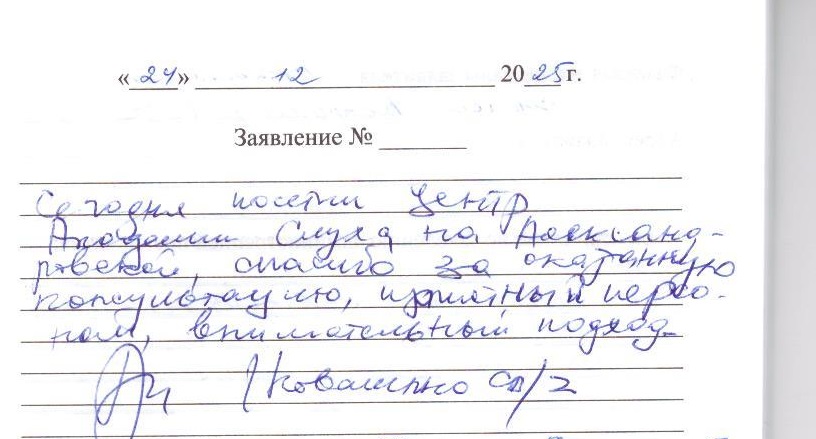 «24» 12 2025 г.
Заявление №
Сегодня посетил Центр
Академии Слуха на Александ-
ровской, спасибо за оказанную
консультацию, приятный персо-
нал, внимательный подход.